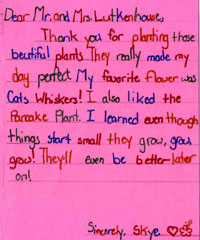 Dear Mr. and Mrs. Lutkenhouse,
Thank you for planting those
beutiful plants. They really made my
day perfect. My favorite flower was
Cats Whiskers! I also liked the
Pancake Plant. I learned even though
things start small they grow, grow,
grow! They'll even be better later
on!
Sincerely, Skye